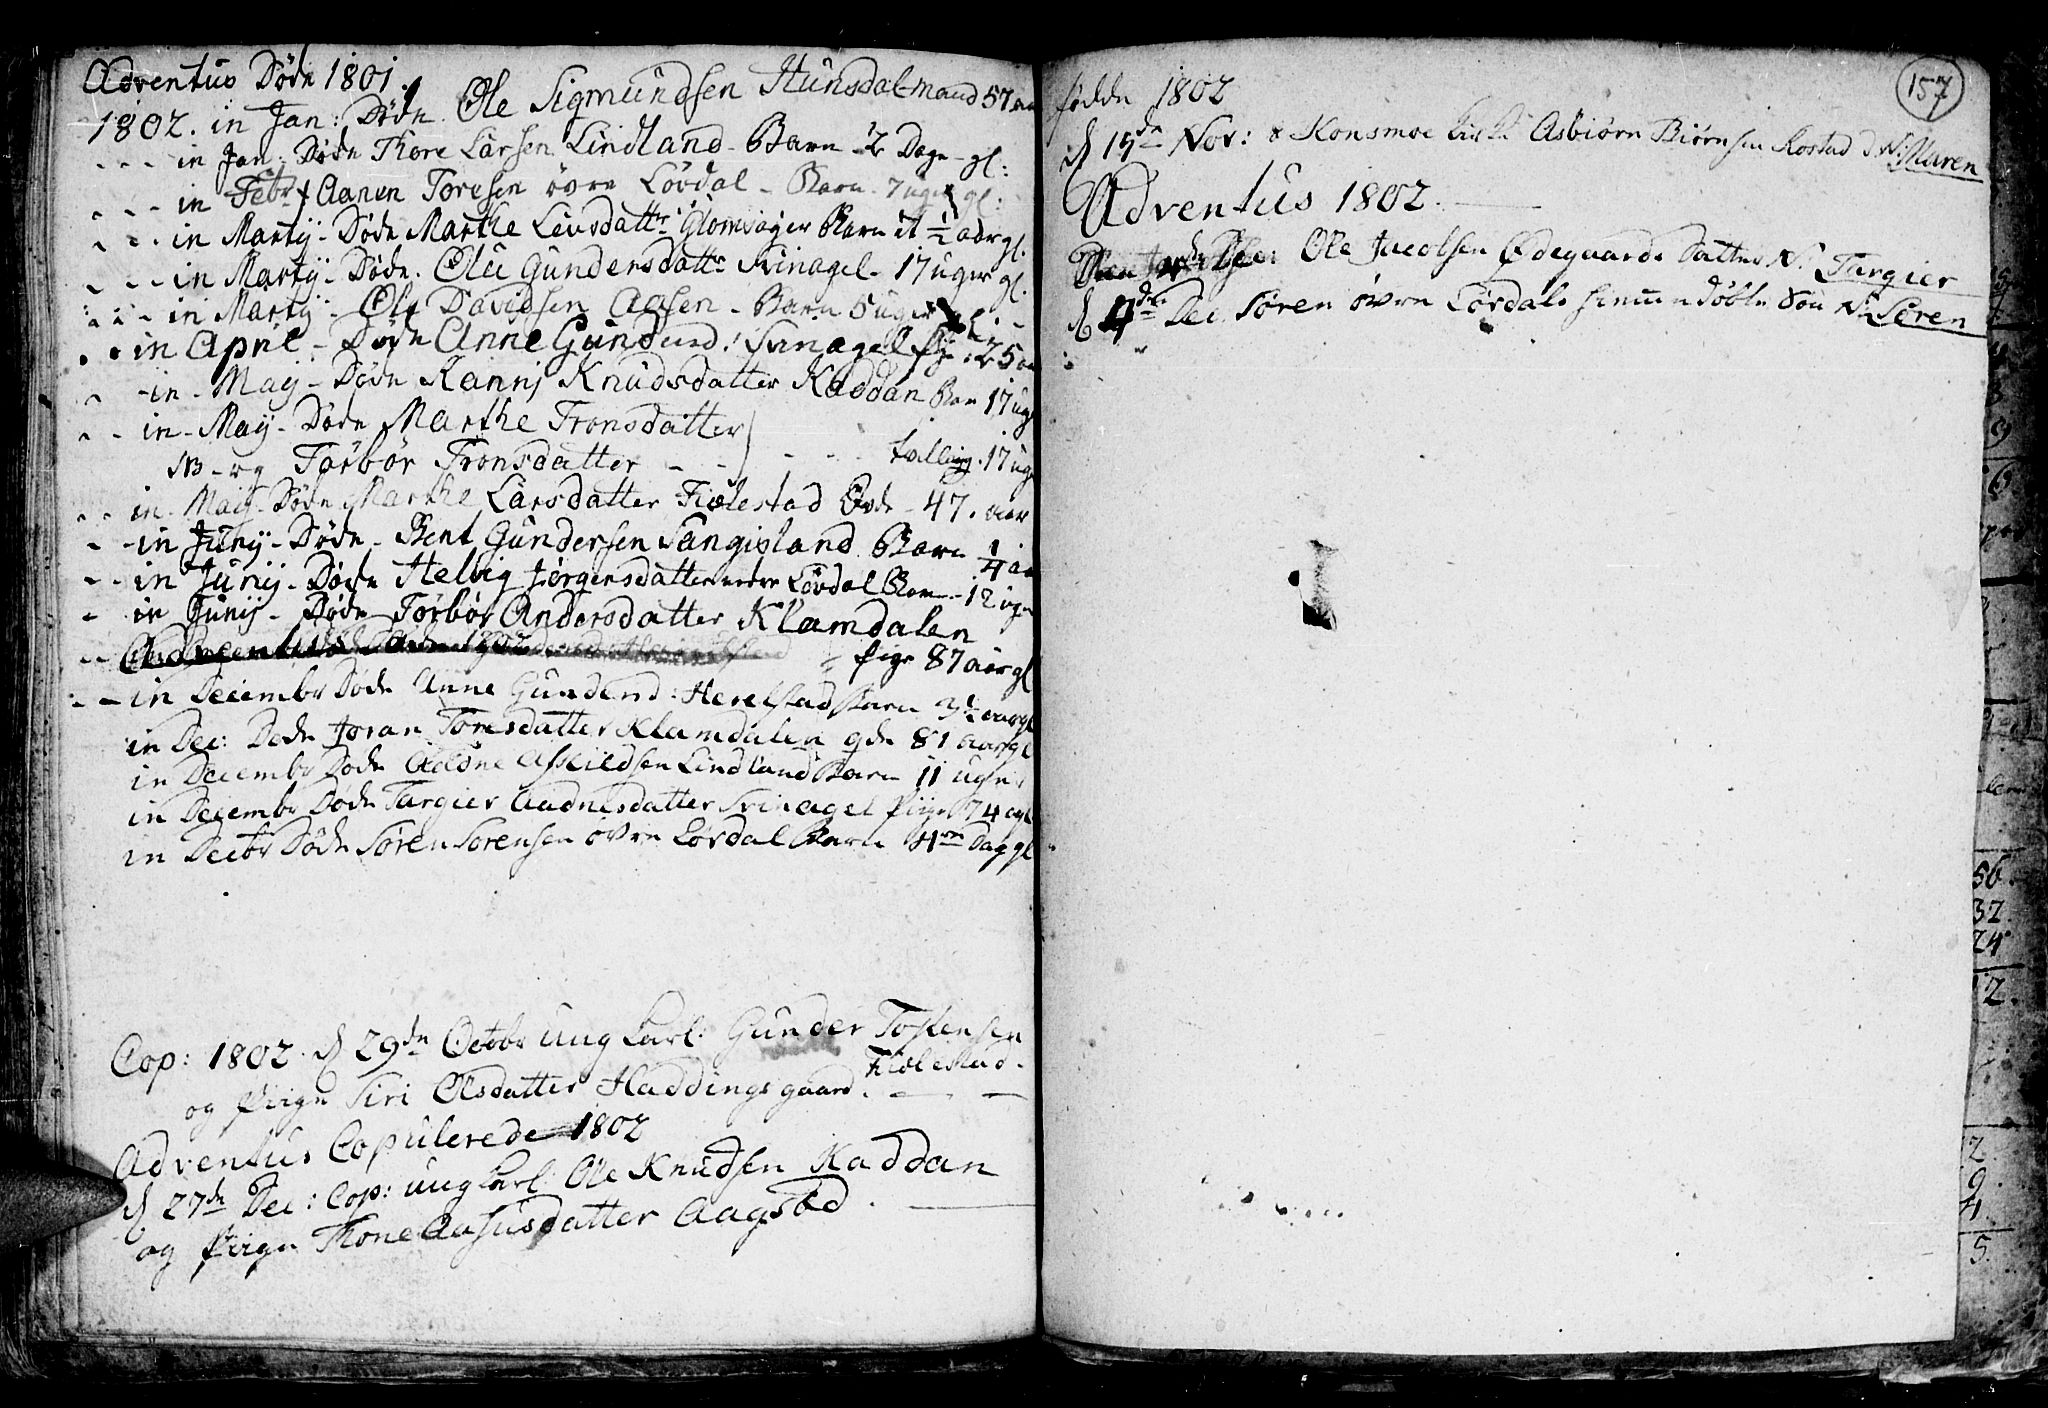 Adventus Døde 1801.
1802. in Jan: Døde. Ole Sigmundsen Hunsdal-mand 57 aar
- - - in Jan: Døde Thore Larsen Lindland - Barn - 2 Dage - gl:
- - - in Febr † Aanen Toresen øvre Lövdal - Barn - 7 uger gl:
- - - in Martij - Døde Marthe Levsdattr Glomsager Barn et ½ aar gl.
- - - in Martij - Døde. Olu Gundersdattr Svinagel - 17 uger gl.
- - - in Martij - Ole Davidsen Aasen - Barn 5 uger gl: -
- - in April - Døde Anne Gunders d: Svinagel Pige 25 aar
- - in - Maij - Døde Rannj Knudsdatter Kaddan Barn 17 ug
- - in - Maij - Døde Marthe Tronsdatter
NB - og Torbør Tronsdatter - - - - - tvilling. 17 uge
- - in - Maij - Døde Marthe Larsdatter Fiælestad - 47. aar
- - in Junij - Døde - Bent Gundersen Sangisland Barn ¼ aa
- - in Junij - Døde Helvig Jørgensdatter nedre Lövdal Barn - 12 uger
- in Junij - Døde Torbør Andersdatter Klamdalen
Pige 87 aar gl
- - in Decembr Døde Anne Gunders d: Herelstad Barn 3½ aar gl
in Dec: Døde Joran Toresdatter Klamdalen 81 aar gl
in Decembr Døde Askildsen Lindland Barn 11 uger
in Decembr Døde Targier Aadnesdatter Svinagel Piige 74 a gl
in Decbr Døde Søren Sorensen øvre Lovdal Barn 4re Dag gl
Cop: 1802. d 29de Octobr ung Karl: Gunder Tostensen
Fiælestad -
og Piige Siri Olsdatter Haddingsgaard. - -
Adventus Copulerede 1802
d 27de Dec: Cop: ung Karl: Ole Knudsen Kaddan
og Piige Thone Aasusdatter Aagsted.
157
fødde 1802
d 15de Nov: Konsmoe Asbiörn Biörnsen Rostad d N: Maren
Adventus 1802.
Ole Jacobsen Ødegaards datter N: Targier
d 4de Dec Søren övre Lövdals hiemmedöbte Søn N: Søren